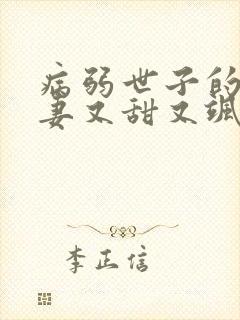 病弱世子的
妻又甜又飒
李正信